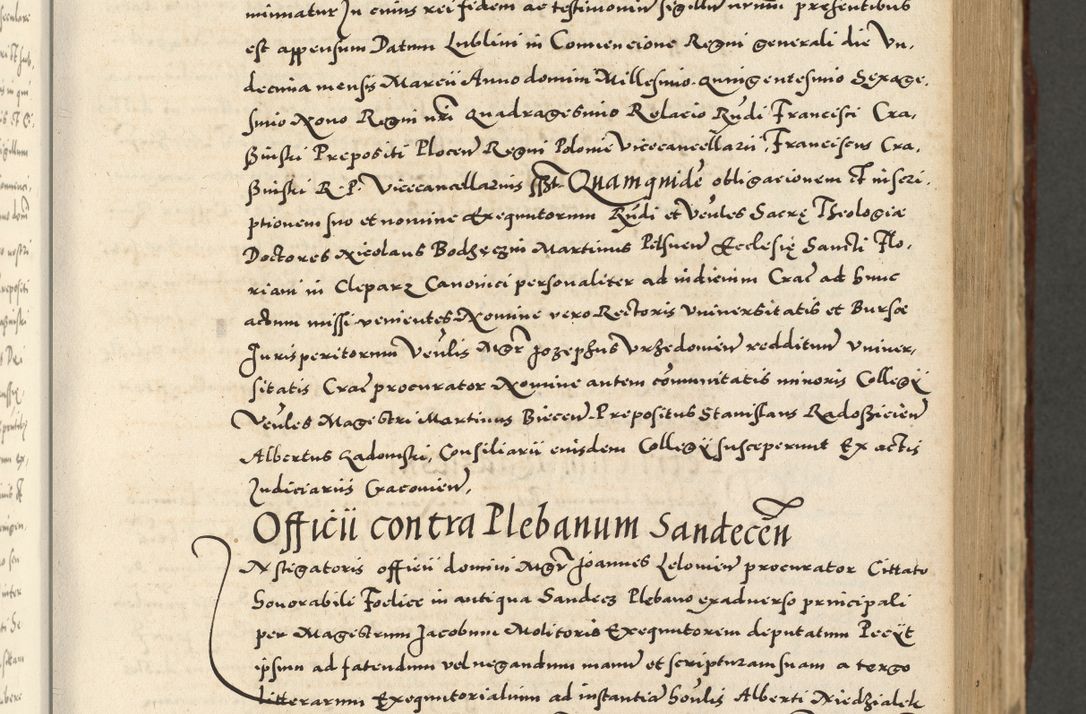 mimatur In cuius rei fidem ac testimonium sigillum nrum presentibus
est appensum Datum Lublini in Conuencione Regni generali die Vn,
decima mensis Marcii Anno domini Millesimo quingentesimo Sexage,
simo Nono Regni nri Quadragesimo Relacio Rndi Francisci Cra,
ßinski Prepositi Plocen Regni Polonie Vicecancellarii, Franciscus Cra,
ßinski R. P. Vicecancellarius sst Quamquidē obligacionem et inscri,
ptionem suo et nomine Exequutorum Rndi et Venles Sacrę Theologiæ
Doctores Nicolaus Bodzęczin Martinus Pilsnen Ecclesię Sancti Flo,
riani in Cleparz Canonici personaliter ad iudicium Crac ad hunc
actum missi venientes Nomine vero Rectoris Vniuersitatis et Bursæ
Iurisperitorum Venlis Mgr Iozephus Vrzedowien reddituum Vniuer,
sitatis Crac procurator Nomine autem cōmunitatis minoris Collegÿ
Venles Magestri Martinus Biecen Prepositus Stanislaus Radoßicien
Albertus Radomski, Consiliarii eiusdem Collegÿ susceperunt Ex actis
Iudiciariis Cracouien,
Officii contra Plebanum Sandecēn
INstigatoris officii domini Mgr Joannes Lelouien procurator Cittato
honorabili Foelice in antiqua Sandecz Plebano exaduerso principali
per Magestrum Jacobum Molitoris Exequutorem deputatum Pecÿt
ipsum ad fatendum vel negandum manum et scripturam suam a tergo
litterarum Exequutorialium ad instantia honlis Alberti Niedzialek